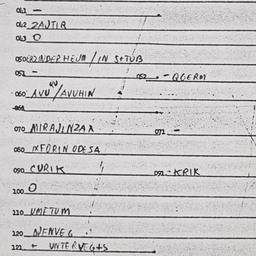 011 –
012 ZAJTIR
013 O
050 INDEPHEUM / IN STUB
051 – 052 – QGERM
060 AVU / AVUHIN
061
070 MIRAJINZAX 071 –
080 IXFORIN ODESA
090 CURIK 091 – KRIK
100 O
110 UMETUM
120 NENVEG
121 + UNTERVEG+S